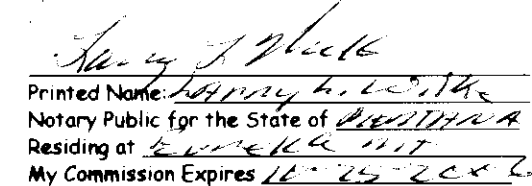 Larry L
Printed Name: Larry L. Wilke
Notary Public for the State of Montana
Residing at Eureka MT
My Commission Expires 10-25-2006